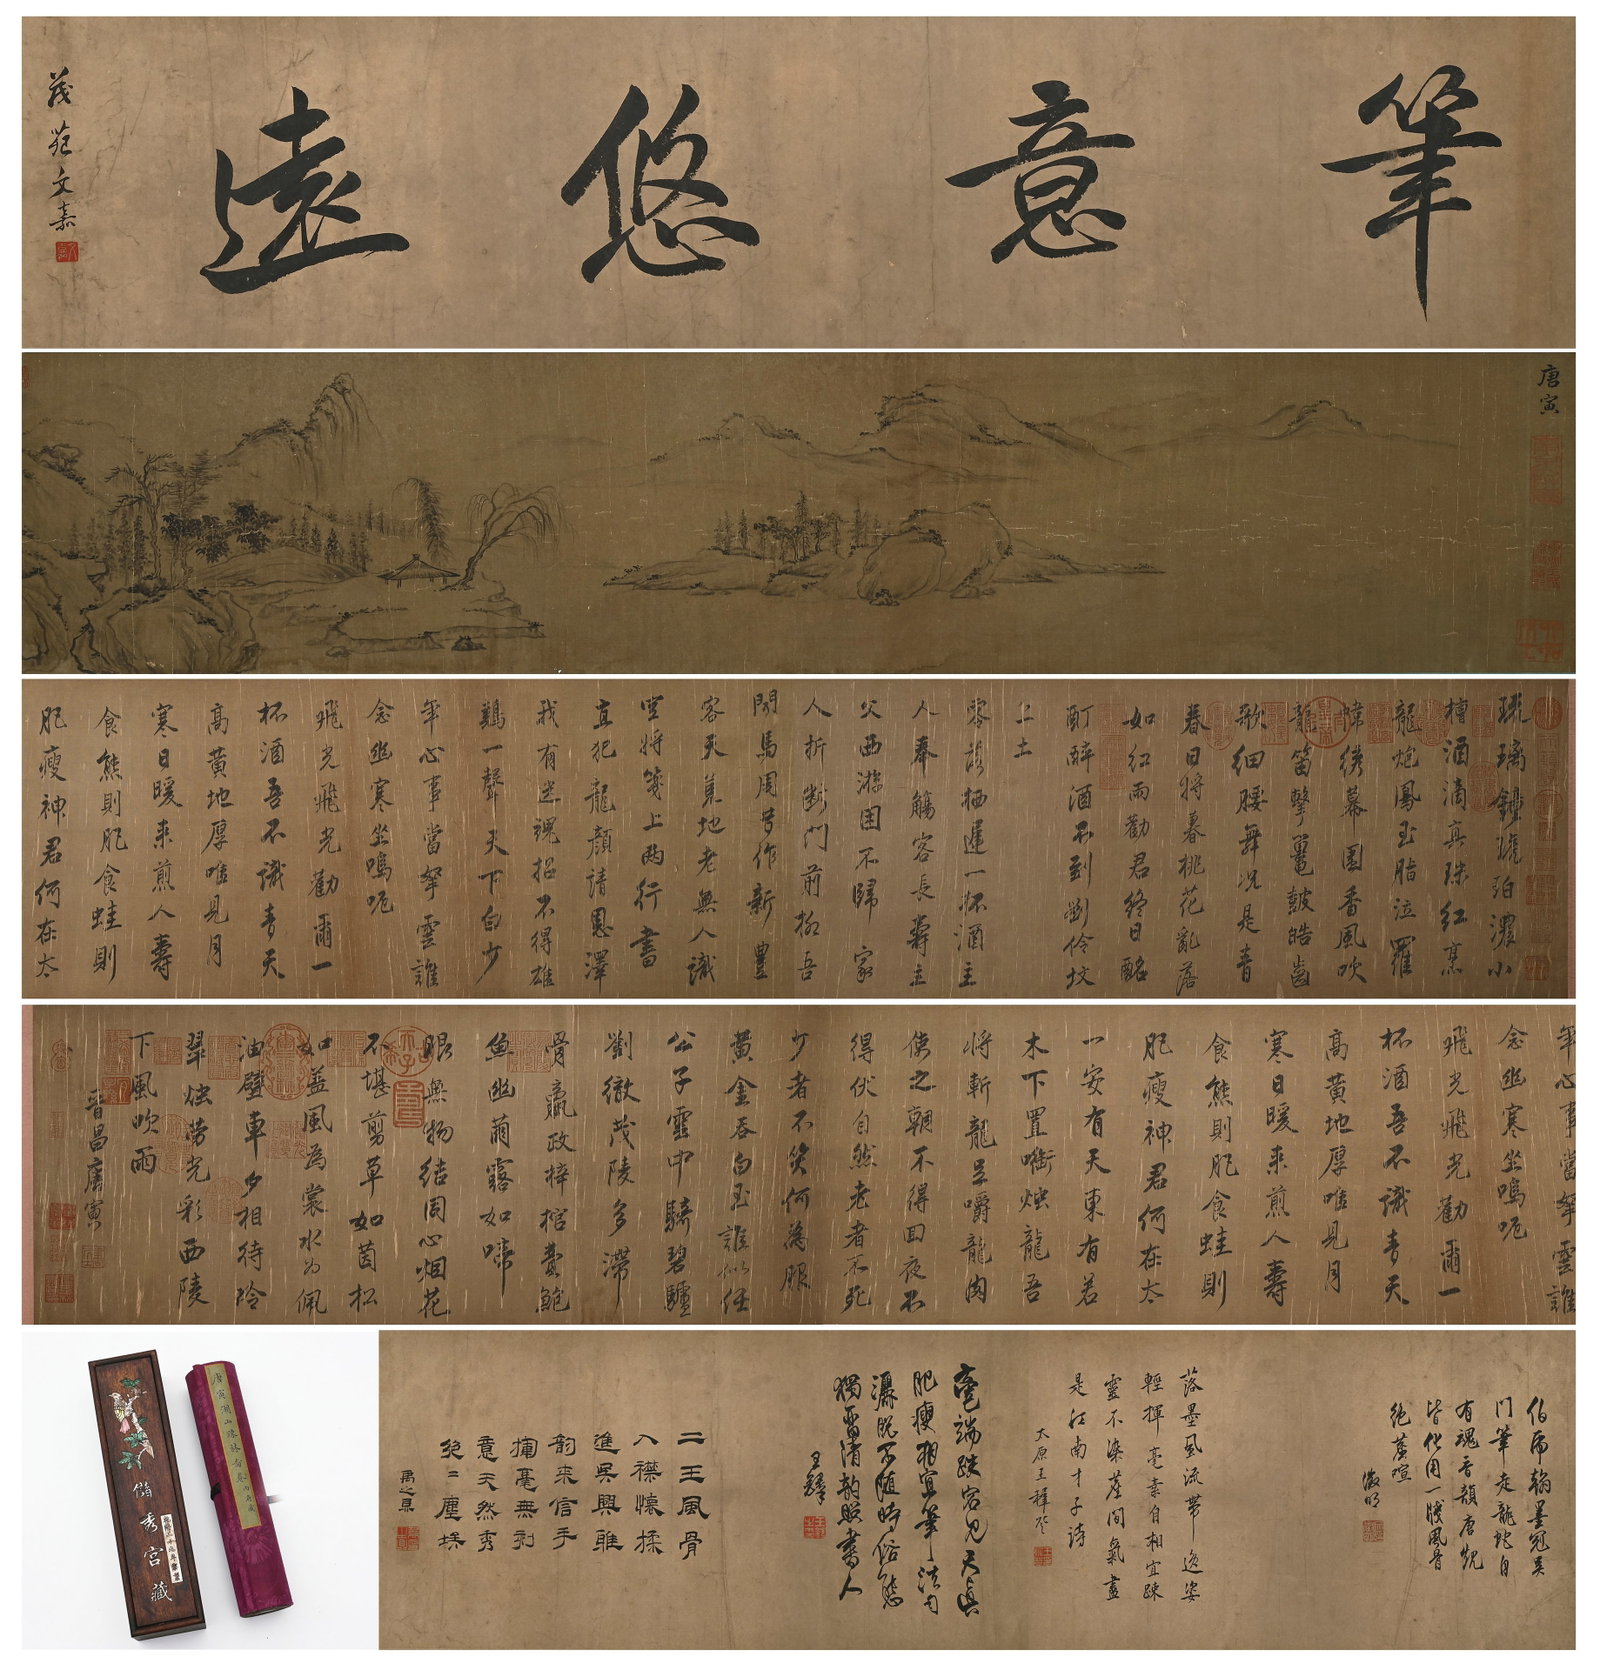 筆意悠遠
茂苑文嘉
唐寅
琉璃鍾琥珀濃小
槽酒滴真珠紅烹
龍炮鳳玉脂泣羅
幃綉幕圍香風吹
龍笛擊鼉鼓皓齒
歌細腰舞況是青
春日將暮桃花亂落
如紅雨勸君終日酩
酊醉酒不到劉伶墳
上土
零落栖遲一杯酒主
人奉觴客長壽主
父西游困不歸家
人折斷門前柳吾
聞馬周昔作新豐
客天荒地老無人識
空將箋上兩行書
直犯龍顏請恩澤
我有迷魂招不得雄
鷄一聲天下白少
年心事當拏雲誰
念幽寒坐嗚呃
飛光飛光勸爾一
杯酒吾不識青天
高黃地厚唯見月
寒日暖來煎人壽
食熊則肥食蛙則
肥瘦神君何在太
年心事當拏雲誰
念幽寒坐嗚呃
飛光飛光勸爾一
杯酒吾不識青天
高黃地厚唯見月
寒日暖來煎人壽
食熊則肥食蛙則
肥瘦神君何在太
一安有天東有若
木下置啣燭龍吾
將斬龍足嚼龍肉
使之朝不得回夜不
得伏自然老者不死
少者不哭何為服
黃金吞白玉誰似任
公子雲中騎碧驢
劉徹茂陵多滯
骨嬴政梓棺費鮑
魚幽蘭露如啼
眼無物結同心烟花
不堪剪草如茵松
如蓋風為裳水為佩
油壁車夕相待冷
翠燭勞光彩西陵
下風吹雨
晉昌唐寅
伯虎翰墨冠吳
門筆走龍蛇自
有魂晉韻唐規
皆化用一牋風骨
絕塵喧
徵明
落墨風流帶逸姿
輕揮毫素自相宜疎
靈不染塵間氣盡
是江南才子詩
太原王穉登
毫端跌宕見天真
肥瘦相宜筆法勻
灑脫不隨時俗態
獨留清韵照書人
王鐸
二王風骨
入襟懷揉
進吳興雅
韵來信手
揮毫無刻
意天然秀
絕塵埃
禹之鼎
儲秀宮藏